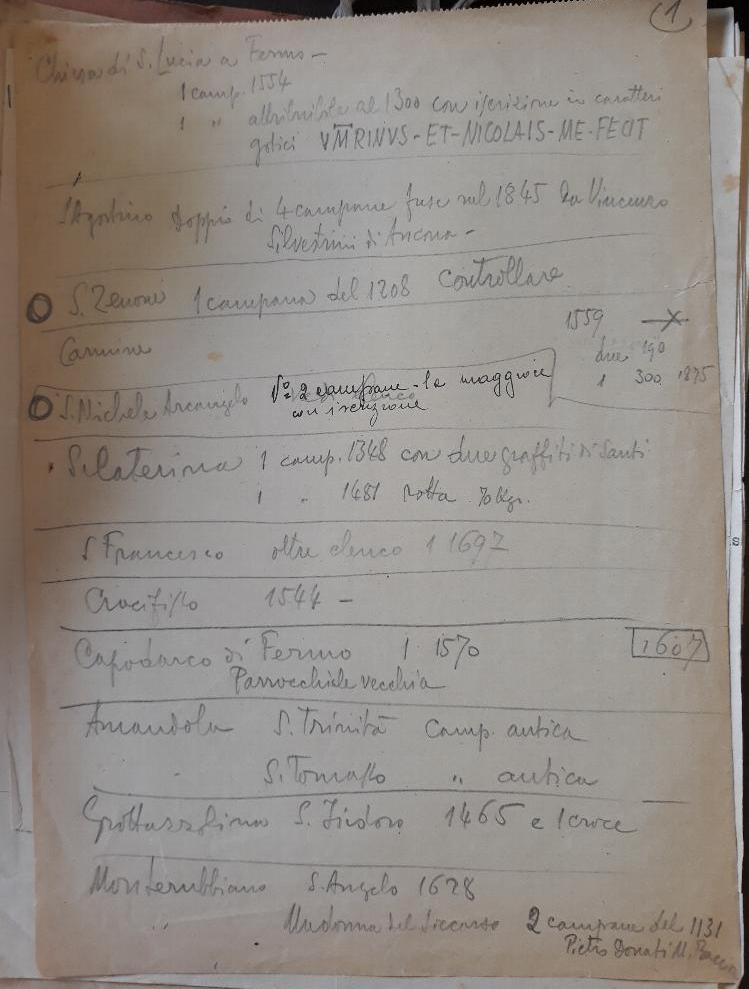 1
Chiesa di S. Lucia a Fermo -
1 camp. 1554
1 " attribuibile al 1300 con iscrizione in caratteri
gotici VMRINVS - ET - NICOLAIS - ME - FECIT
S Agostino doppio di 4 campane fuse nel 1845 da Vincenzo
Silvestrini di Ancona -
S. Zenone 1 campana del 1208 Controllare
1559
Carmine due 190
1 300 1875
S. Michele Arcangelo N° 2 campane - la maggiore
con iscrizione
S. Caterina 1 camp. 1348 con due graffiti di Santi
1 " 1481 rotta 70 Kgr.
S Francesco oltre elenco 1 1697
Crocifisso 1544 -
Capodarco di Fermo 1 1570 1607
Parrocchiale vecchia
Amandola S. Trinità camp. antica
S. Tomasso " antica
Grottazzolina S. Isidoro 1465 e 1 croce
Monterubbiano S. Angelo 1628
" Madonna del Soccorso 2 campane del 1131
Pietro Donati M.